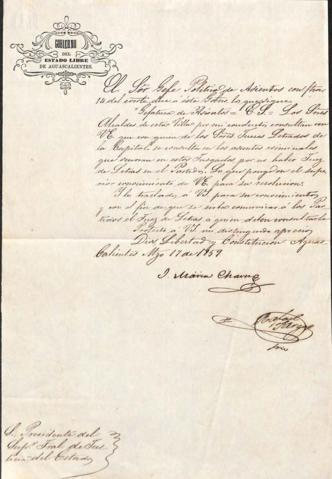 GOBIERNO
DEL
ESTADO LIBRE
DE AGUASCALIENTES.
El Sor Gefe Político de Asientos con fha
14 del corrte dice a este Gobno lo que sigue
"Gefatura de Asientos = E.S. = Los Sres
Alcaldes de esta Villa por mi conducto consultan a
V.E. con quien de los Sres Jueces Letrados de
la Capital se consulta en los asuntos criminales
que ocurran en estos Juzgados por no haber Juez
de Letras en el Partido. Lo que pongo en el supe
rior conocimiento de V.E. para su resolucion
Lo traslado a V.S. para su conocimiento,
y con el fin de que se sirva comunicar a los Par
tidos el Juez de Letras a quien deben consultarle
Protesto a V.S. mi distinguido aprecio
Dios Libertad y Constitucion Aguas
Calientes Mzo 17 de 1859
J. Maria Chavez
srio
S. Presidente del
Supo Tral de Jus
ticia del Estado